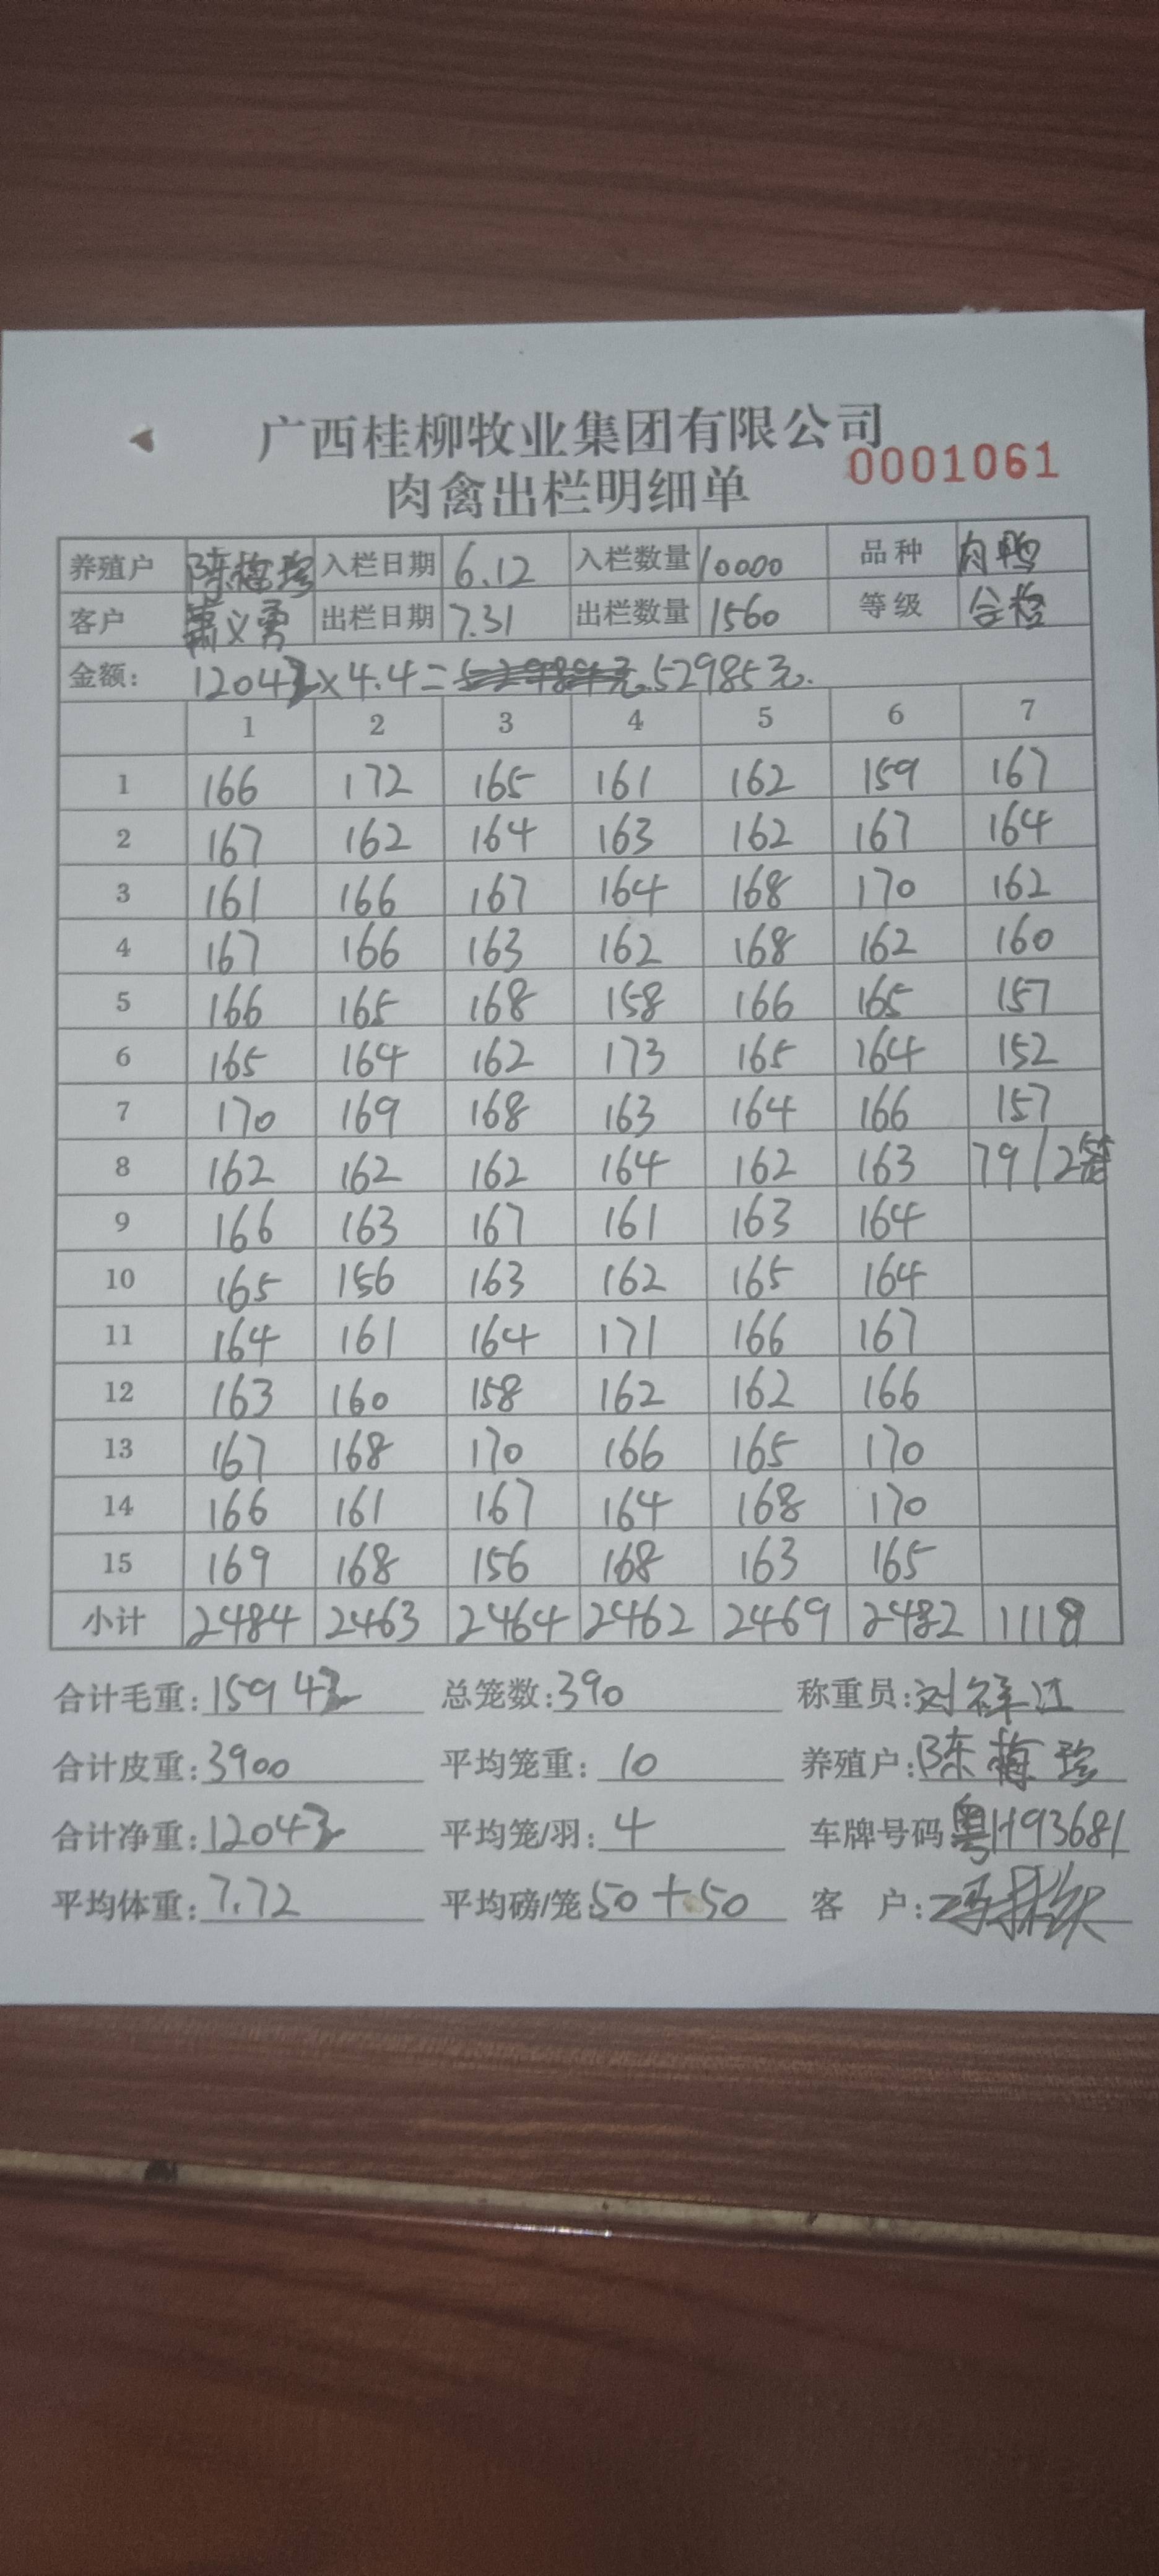 广西桂柳牧业集团有限公司
肉禽出栏明细单 0001061
养殖户 陈梅珍 入栏日期 6.12 入栏数量 10000 品种 肉鸭
客户 萧义勇 出栏日期 7.31 出栏数量 1560 等级 合格
金额: 12042×4.4= 52985元.
1 2 3 4 5 6 7
1 166 172 165 161 162 159 167
2 167 162 164 163 162 167 164
3 161 166 167 164 168 170 162
4 167 166 163 162 168 162 160
5 166 165 168 158 166 165 157
6 165 164 162 173 165 164 152
7 170 169 168 163 164 166 157
8 162 162 162 164 162 163 79/2笼
9 166 163 167 161 163 164
10 165 156 163 162 165 164
11 164 161 164 171 166 167
12 163 160 158 162 162 166
13 167 168 170 166 165 170
14 166 161 167 164 168 170
15 169 168 156 168 163 165
小计 2484 2463 2464 2462 2469 2482 1118
合计毛重: 15942 总笼数: 390 称重员: 刘祥江
合计皮重: 3900 平均笼重: 10 养殖户: 陈梅珍
合计净重: 12042 平均笼/羽: 4 车牌号码 粤H93681
平均体重: 7.72 平均磅/笼: 50+50 客户: